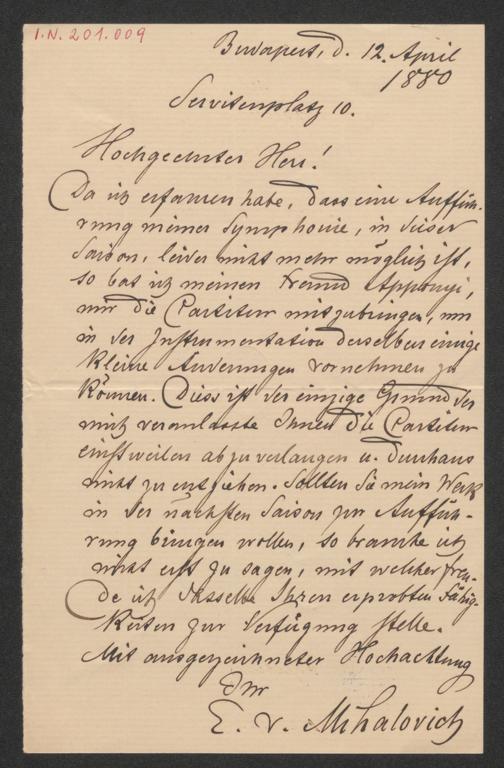 I.N. 201.009
Budapest, d. 12. April
1880
Servitenplatz 10.
Hochgeehrter Herr!
Da ich erfahren habe, dass eine Auffüh-
rung meiner Symphonie, in dieser
Saison, leider nicht mehr möglich ist,
so bat ich meinen Freund Apponyi,
mir die Partitur mitzubringen, um
in der Instrumentation derselben einige
kleine Änderungen vornehmen zu
können. Diess ist der einzige Grund der
mich veranlasste Ihnen die Partitur
einstweilen abzuverlangen u. durchaus
nicht zu entziehen. Sollten Sie mein Werk
in der nächsten Saison zur Auffüh-
rung bringen wollen, so brauche ich
nicht erst zu sagen, mit welcher Freu-
de ich dasselbe Ihren erprobten Fähig-
keiten zur Verfügung stelle.
Mit ausgezeichneter Hochachtung
Ihr
E. v. Mihalovich